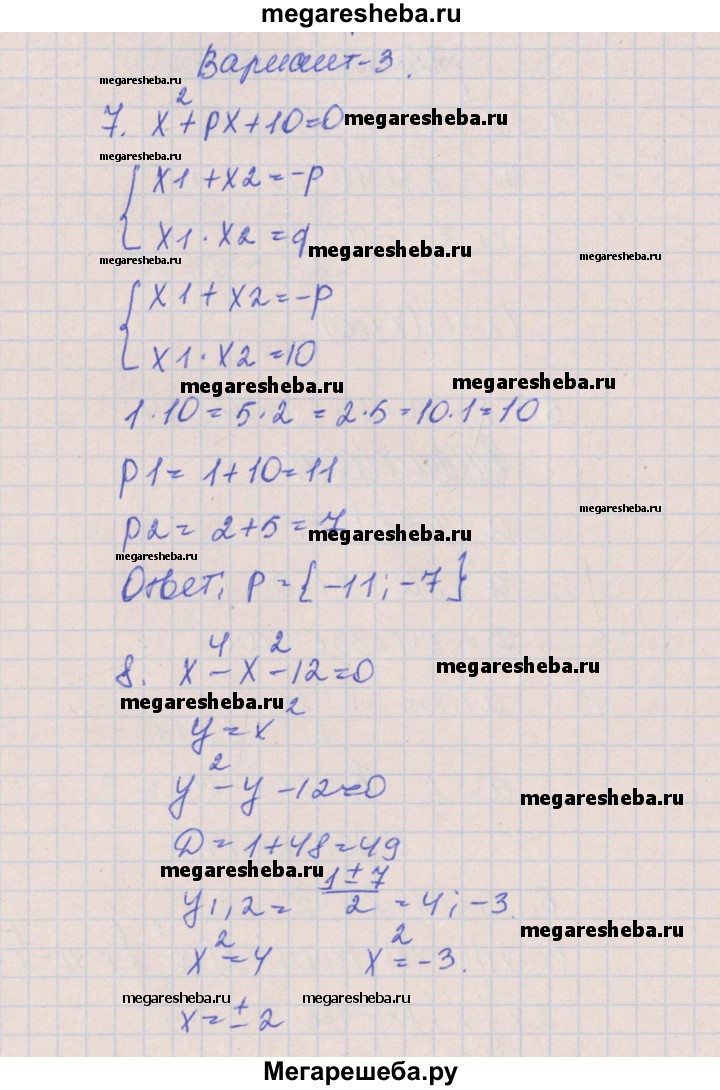 megaresheba.ru
Вариант-3.
megaresheba.ru
7. x² + px + 10 = 0 megaresheba.ru
megaresheba.ru
{ x1 + x2 = -p
x1 · x2 = q megaresheba.ru
megaresheba.ru megaresheba.ru
{ x1 + x2 = -p
x1 · x2 = 10
megaresheba.ru megaresheba.ru
1·10 = 5·2 = 2·5 = 10·1 = 10
p1 = 1+10 = 11
megaresheba.ru
p2 = 2+5 = 7 megaresheba.ru
megaresheba.ru
Ответ: p = {-11; -7}
8. x⁴ - x² - 12 = 0 megaresheba.ru
megaresheba.ru
y = x²
y² - y - 12 = 0 megaresheba.ru
D = 1+48 = 49
megaresheba.ru
y1,2 = (1±7)/2 = 4; -3.
megaresheba.ru
x² = 4 x² = -3.
megaresheba.ru megaresheba.ru
x = ±2
Мегарешеба.ру